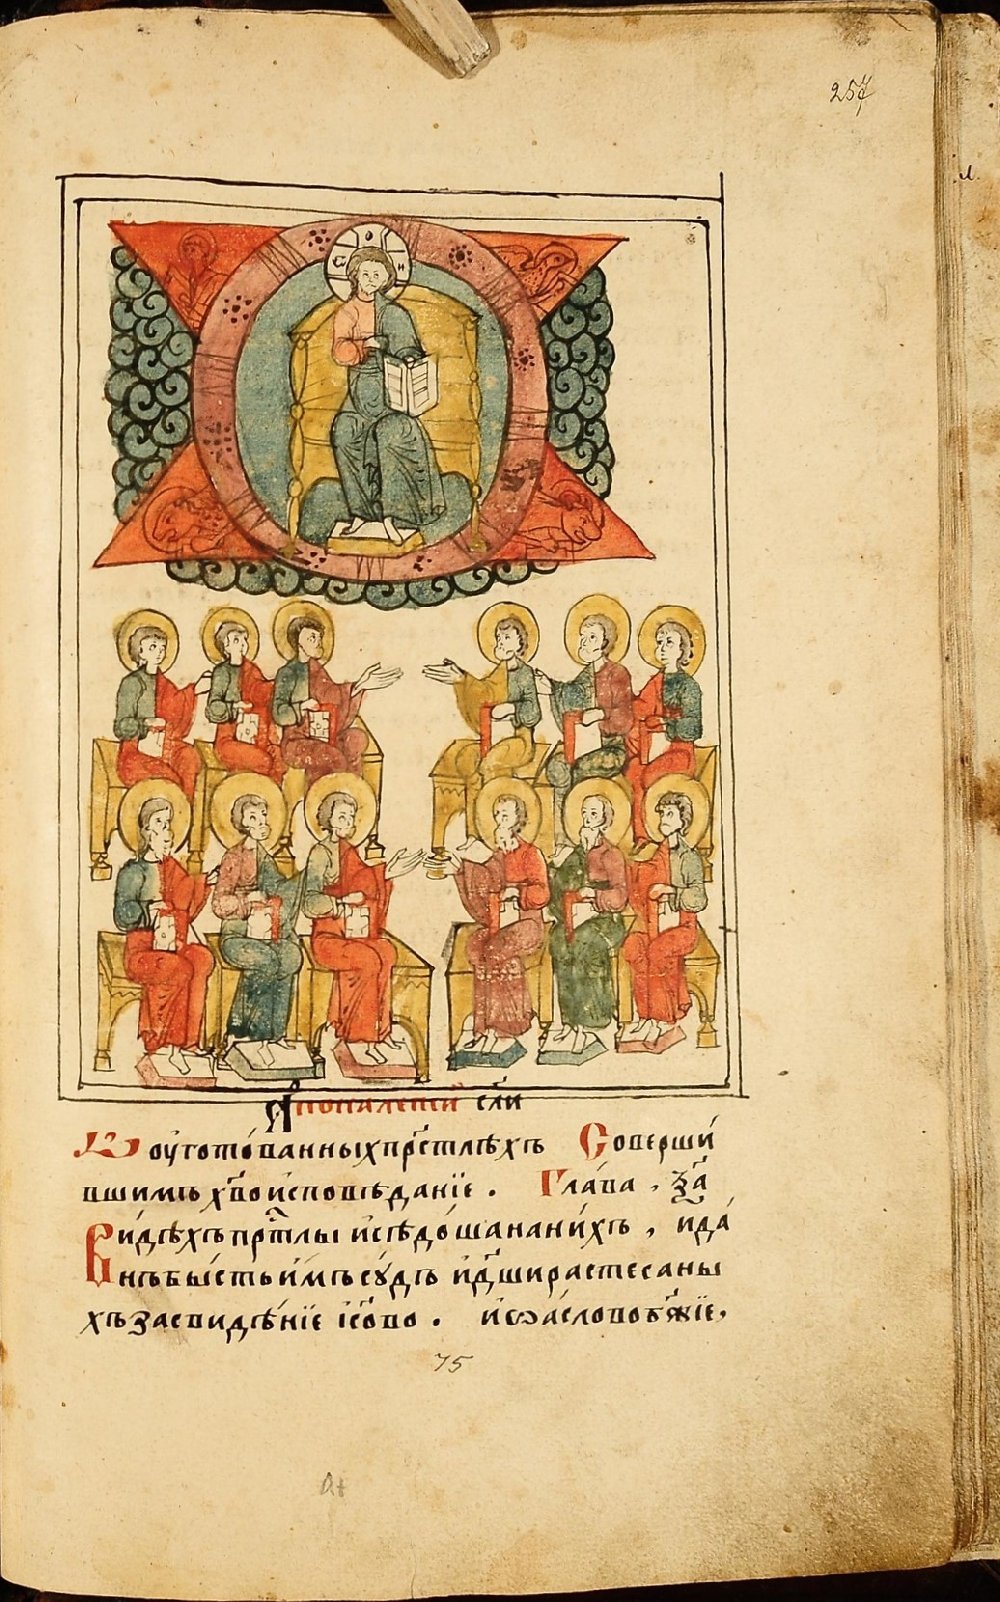 257
Ѡ О Н
Апокалепсїй сл҃и
Ѡ оуготѡ́ванныхъ прⷭ҇тлѣхъ Соверши́
вшимъ хв҃о исповѣданїе. Глава̀. ѯ҃а
Ви́дѣхъ прⷭ҇тлы и҆сѣдо́ша на ни́хъ, и҆ да́
нъ бы́сть и҆мъ су́дъ и҆ дш҃и растесаны
хъ за свидѣ́нїе і҆с҃ово. и҆ за сло́во бж҃їе,
75